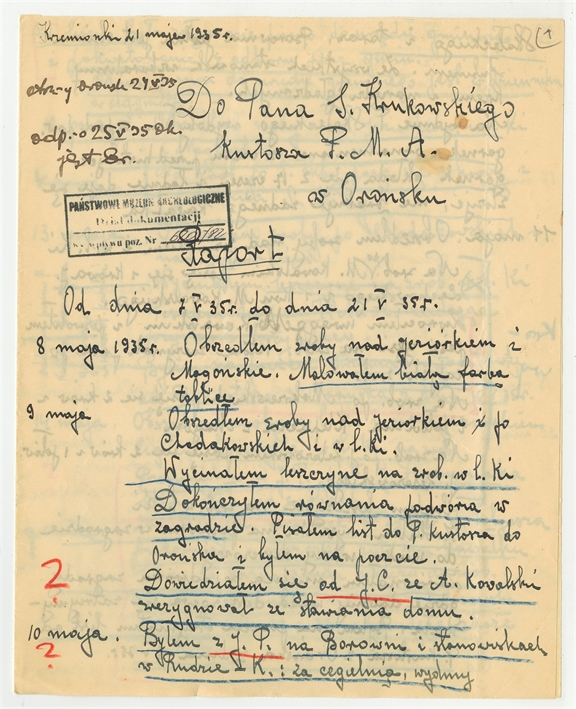 Krzemionki 21 maja 1935r.
1
otrzy Orońsk 24 V 35
odp. 25 V 35 Or.
jest Or.
Do Pana S. Krukowskiego
Kustosza P. M. A.
w Orońsku
PAŃSTWOWE MUZEUM ARCHEOLOGICZNE
Dział dokumentacji
wpływu poz. Nr
Raport
Od dnia 7 V 35r. do dnia 21 V 35r.
8 maja 1935r. Obszedłem zroby nad jeziorkiem i
Mogonskie. Malowałem białą farbą
tablice
9 maja Obszedłem zroby nad jeziorkiem i po
Chadakowskich i w L.Ki.
Wycinałem leszczynę na zrob. w L. Ki
Dokończyłem równania podwórza w
zagrodzie. Pisałem list do P. Kustosza do
Orońska i byłem na poczcie.
? Dowiedziałem się od J.C. ze A. Kowalski
zrezygnował ze stawiania domu.
10 maja. Byłem z J. P. na Borowni i stanowiskach
? w Rudzie - K. : za cegielnią, wydmy